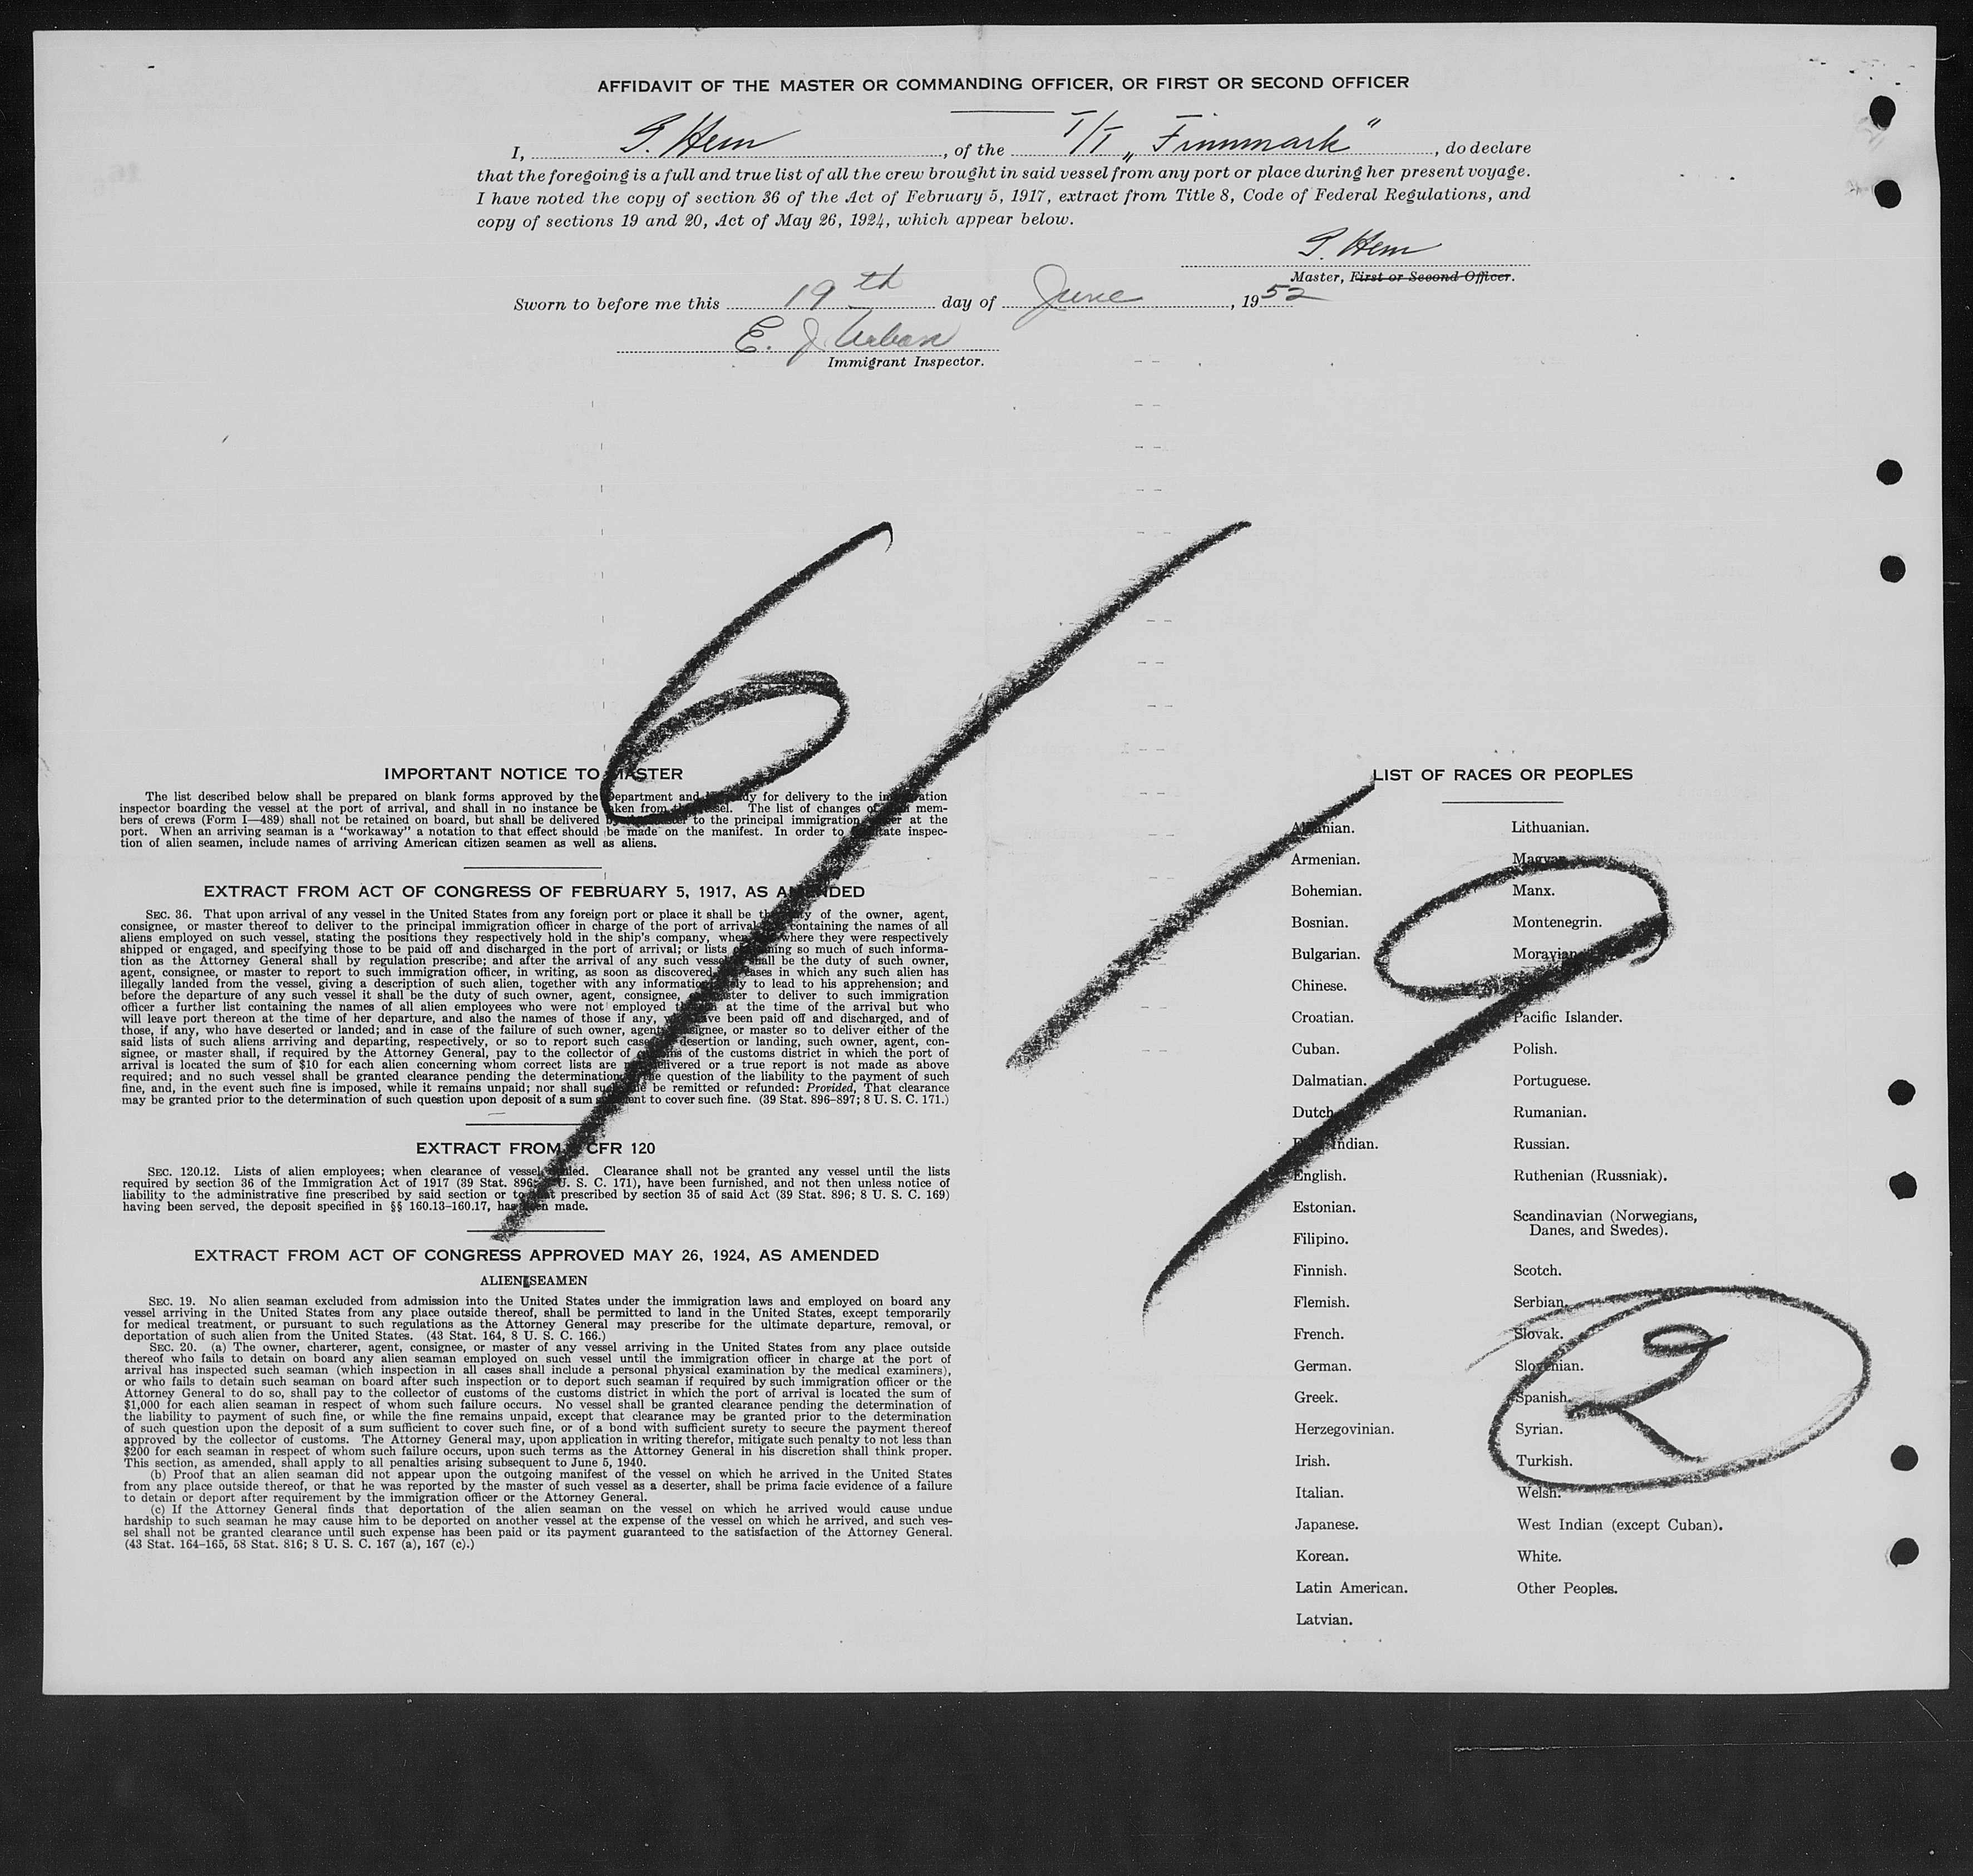 AFFIDAVIT OF THE MASTER OR COMMANDING OFFICER, OR FIRST OR SECOND OFFICER
I, Hem, of the T/T „Finnmark", do declare
that the foregoing is a full and true list of all the crew brought in said vessel from any port or place during her present voyage.
I have noted the copy of section 36 of the Act of February 5, 1917, extract from Title 8, Code of Federal Regulations, and
copy of sections 19 and 20, Act of May 26, 1924, which appear below.
Hem
Master, First or Second Officer.
Sworn to before me this 19th day of June, 1952
E. J. Urban
Immigrant Inspector.
6/19
2
IMPORTANT NOTICE TO MASTER
The list described below shall be prepared on blank forms approved by the Department and ready for delivery to the immigration
inspector boarding the vessel at the port of arrival, and shall in no instance be taken from the vessel. The list of changes of mem-
bers of crews (Form I—489) shall not be retained on board, but shall be delivered by the master to the principal immigration officer at the
port. When an arriving seaman is a "workaway" a notation to that effect should be made on the manifest. In order to facilitate inspec-
tion of alien seamen, include names of arriving American citizen seamen as well as aliens.
EXTRACT FROM ACT OF CONGRESS OF FEBRUARY 5, 1917, AS AMENDED
SEC. 36. That upon arrival of any vessel in the United States from any foreign port or place it shall be the duty of the owner, agent,
consignee, or master thereof to deliver to the principal immigration officer in charge of the port of arrival containing the names of all
aliens employed on such vessel, stating the positions they respectively hold in the ship's company, when where they were respectively
shipped or engaged, and specifying those to be paid off and discharged in the port of arrival; or lists containing so much of such informa-
tion as the Attorney General shall by regulation prescribe; and after the arrival of any such vessel shall be the duty of such owner,
agent, consignee, or master to report to such immigration officer, in writing, as soon as discovered, cases in which any such alien has
illegally landed from the vessel, giving a description of such alien, together with any information likely to lead to his apprehension; and
before the departure of any such vessel it shall be the duty of such owner, agent, consignee, or master to deliver to such immigration
officer a further list containing the names of all alien employees who were not employed thereon at the time of the arrival but who
will leave port thereon at the time of her departure, and also the names of those if any, who have been paid off and discharged, and of
those, if any, who have deserted or landed; and in case of the failure of such owner, agent, consignee, or master so to deliver either of the
said lists of such aliens arriving and departing, respectively, or so to report such cases of desertion or landing, such owner, agent, con-
signee, or master shall, if required by the Attorney General, pay to the collector of customs of the customs district in which the port of
arrival is located the sum of $10 for each alien concerning whom correct lists are not delivered or a true report is not made as above
required; and no such vessel shall be granted clearance pending the determination of the question of the liability to the payment of such
fine, and, in the event such fine is imposed, while it remains unpaid; nor shall such fine be remitted or refunded: Provided, That clearance
may be granted prior to the determination of such question upon deposit of a sum sufficient to cover such fine. (39 Stat. 896–897; 8 U. S. C. 171.)
EXTRACT FROM 8 CFR 120
SEC. 120.12. Lists of alien employees; when clearance of vessel denied. Clearance shall not be granted any vessel until the lists
required by section 36 of the Immigration Act of 1917 (39 Stat. 896; 8 U. S. C. 171), have been furnished, and not then unless notice of
liability to the administrative fine prescribed by said section or to that prescribed by section 35 of said Act (39 Stat. 896; 8 U. S. C. 169)
having been served, the deposit specified in §§ 160.13–160.17, has been made.
EXTRACT FROM ACT OF CONGRESS APPROVED MAY 26, 1924, AS AMENDED
ALIEN SEAMEN
SEC. 19. No alien seaman excluded from admission into the United States under the immigration laws and employed on board any
vessel arriving in the United States from any place outside thereof, shall be permitted to land in the United States, except temporarily
for medical treatment, or pursuant to such regulations as the Attorney General may prescribe for the ultimate departure, removal, or
deportation of such alien from the United States. (43 Stat. 164, 8 U. S. C. 166.)
SEC. 20. (a) The owner, charterer, agent, consignee, or master of any vessel arriving in the United States from any place outside
thereof who fails to detain on board any alien seaman employed on such vessel until the immigration officer in charge at the port of
arrival has inspected such seaman (which inspection in all cases shall include a personal physical examination by the medical examiners),
or who fails to detain such seaman on board after such inspection or to deport such seaman if required by such immigration officer or the
Attorney General to do so, shall pay to the collector of customs of the customs district in which the port of arrival is located the sum of
$1,000 for each alien seaman in respect of whom such failure occurs. No vessel shall be granted clearance pending the determination of
the liability to payment of such fine, or while the fine remains unpaid, except that clearance may be granted prior to the determination
of such question upon the deposit of a sum sufficient to cover such fine, or of a bond with sufficient surety to secure the payment thereof
approved by the collector of customs. The Attorney General may, upon application in writing therefor, mitigate such penalty to not less than
$200 for each seaman in respect of whom such failure occurs, upon such terms as the Attorney General in his discretion shall think proper.
This section, as amended, shall apply to all penalties arising subsequent to June 5, 1940.
(b) Proof that an alien seaman did not appear upon the outgoing manifest of the vessel on which he arrived in the United States
from any place outside thereof, or that he was reported by the master of such vessel as a deserter, shall be prima facie evidence of a failure
to detain or deport after requirement by the immigration officer or the Attorney General.
(c) If the Attorney General finds that deportation of the alien seaman on the vessel on which he arrived would cause undue
hardship to such seaman he may cause him to be deported on another vessel at the expense of the vessel on which he arrived, and such ves-
sel shall not be granted clearance until such expense has been paid or its payment guaranteed to the satisfaction of the Attorney General.
(43 Stat. 164–165, 58 Stat. 816; 8 U. S. C. 167 (a), 167 (c).)
LIST OF RACES OR PEOPLES
Albanian.
Armenian.
Bohemian.
Bosnian.
Bulgarian.
Chinese.
Croatian.
Cuban.
Dalmatian.
Dutch.
East Indian.
English.
Estonian.
Filipino.
Finnish.
Flemish.
French.
German.
Greek.
Herzegovinian.
Irish.
Italian.
Japanese.
Korean.
Latin American.
Latvian.
Lithuanian.
Magyar.
Manx.
Montenegrin.
Moravian
Pacific Islander.
Polish.
Portuguese.
Rumanian.
Russian.
Ruthenian (Russniak).
Scandinavian (Norwegians,
Danes, and Swedes).
Scotch.
Serbian.
Slovak.
Slovenian.
Spanish.
Syrian.
Turkish.
Welsh.
West Indian (except Cuban).
White.
Other Peoples.